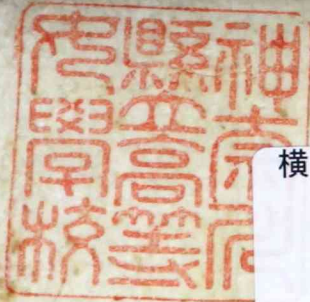 神奈川
縣立高等
女學校
横